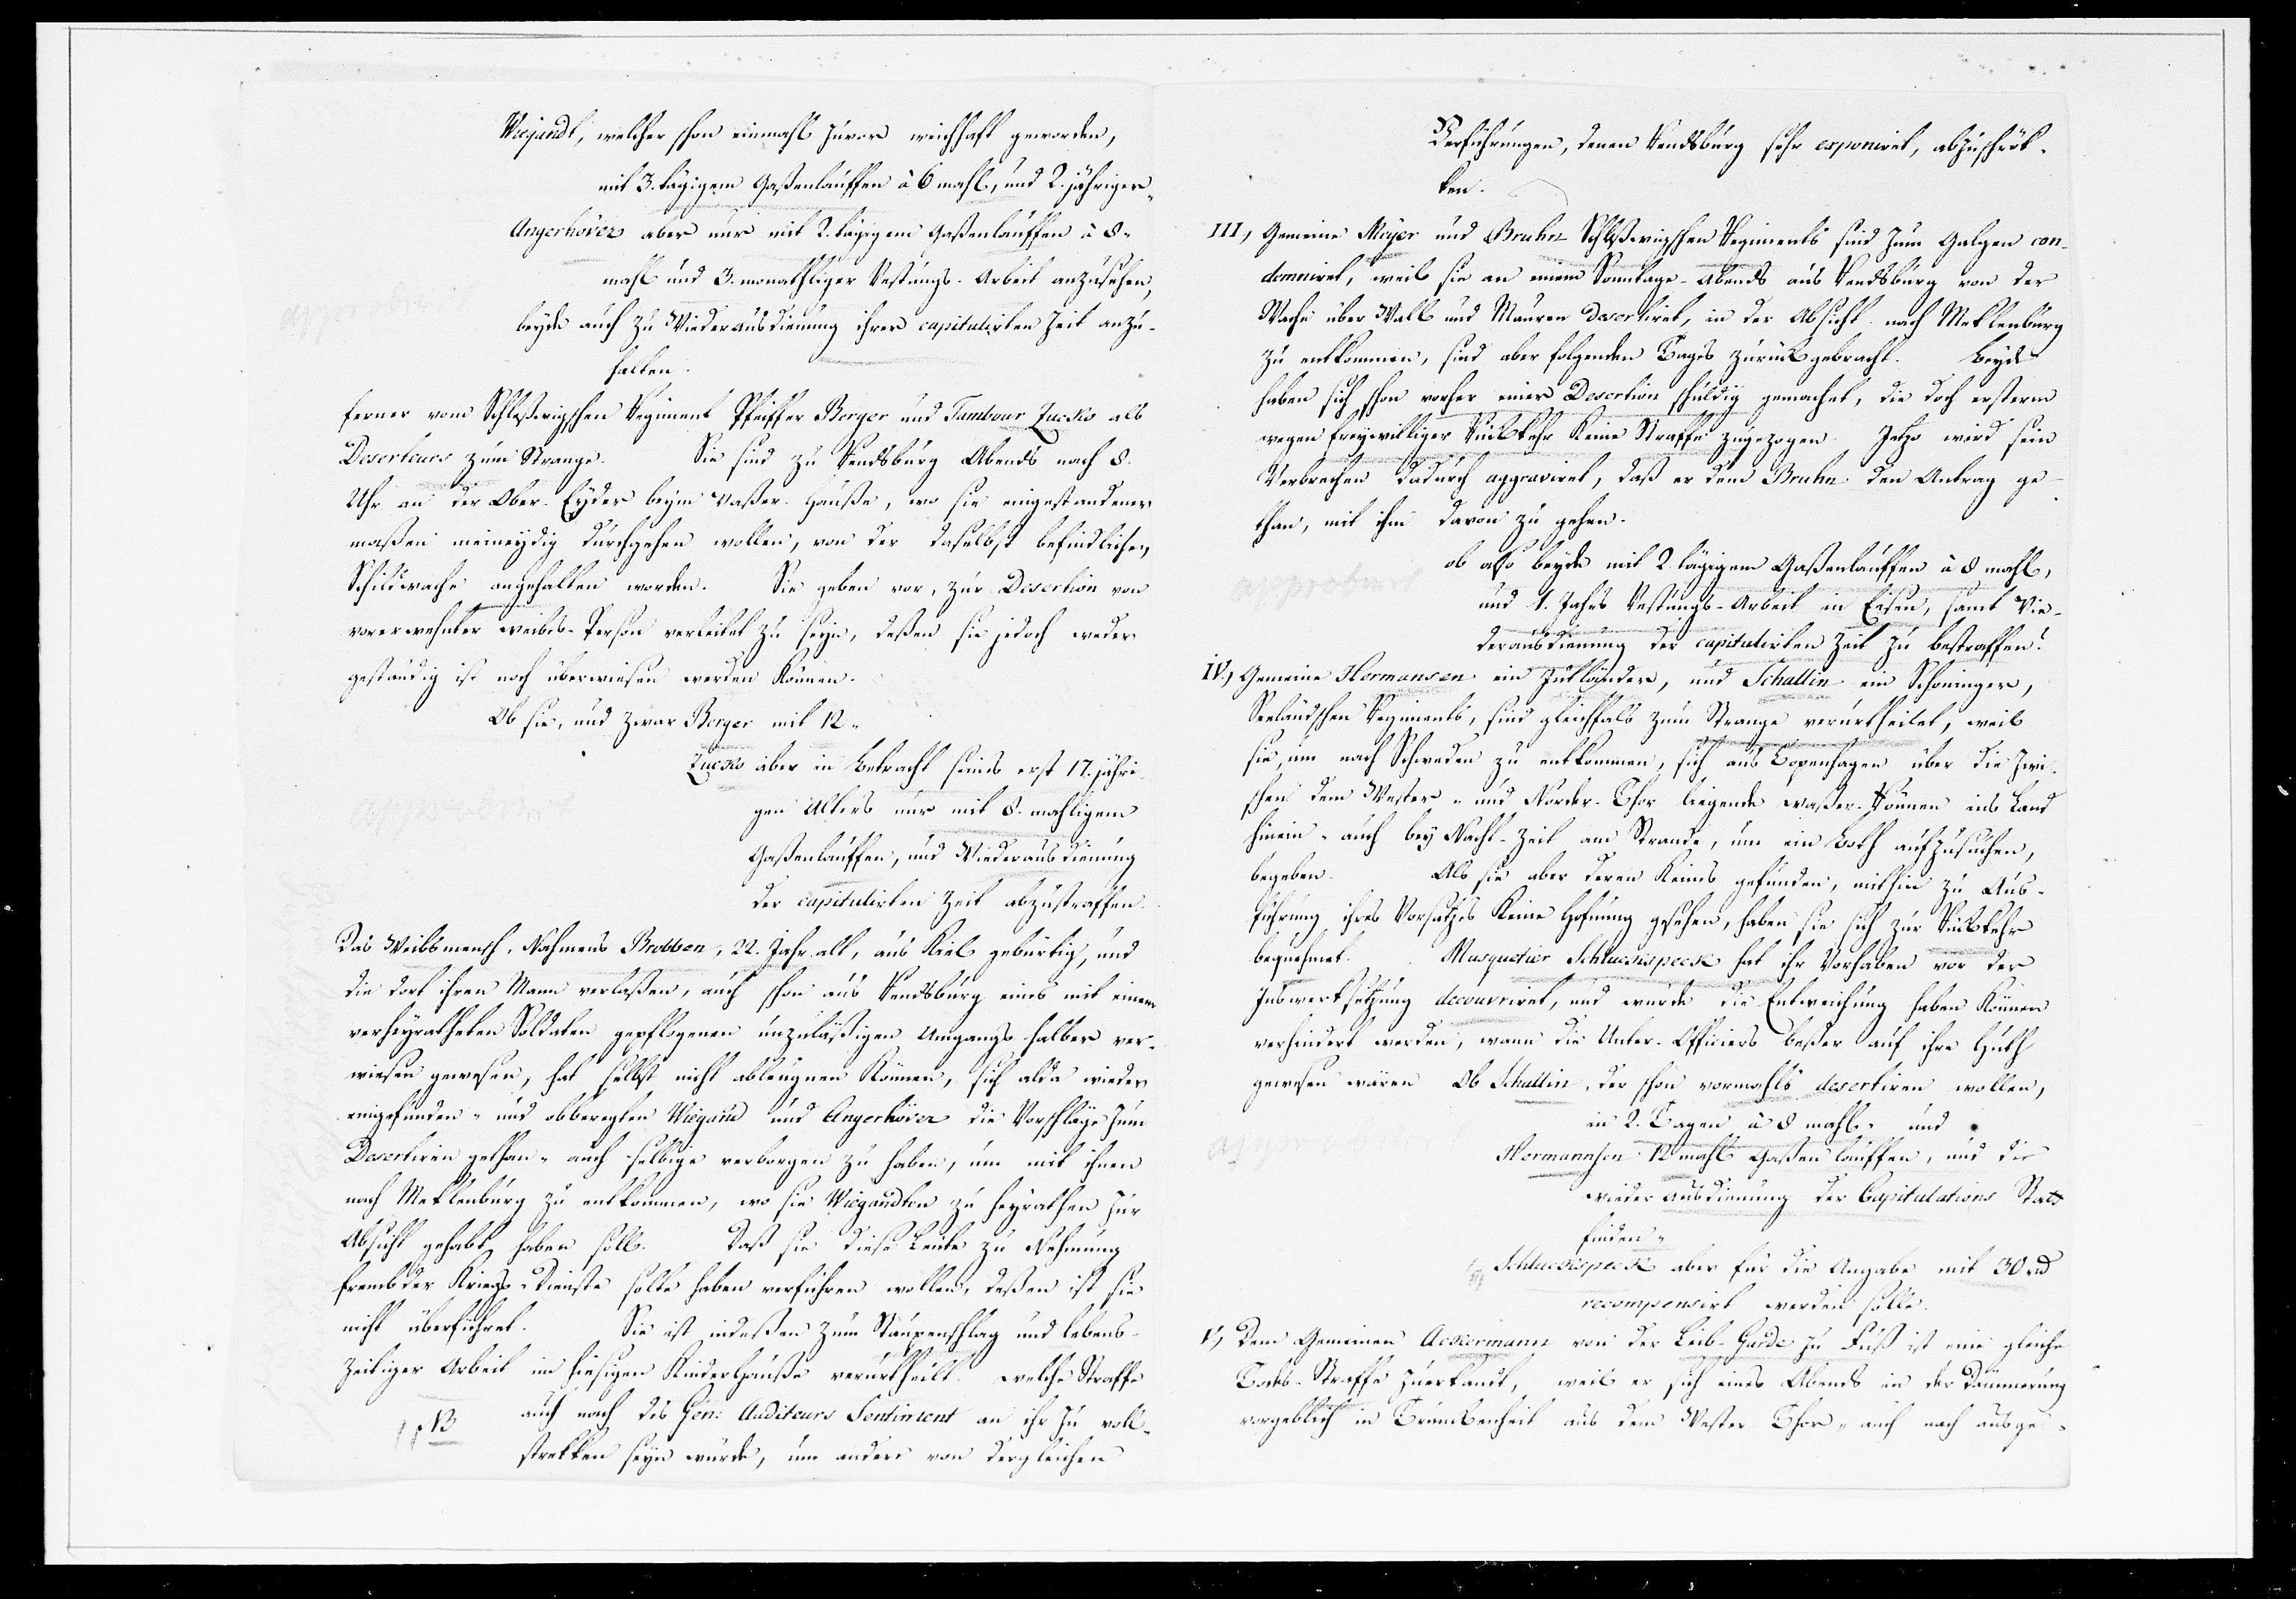 Wiegandt, welcher schon einmahl zuvor weichhaft geworden,
mit 3. tägigem Gaßenlauffen à 6 mahl, und 2. jähriger,,
Angerhöver aber nur mit 2. tägigem Gaßenlauffen à 8.
mahl und 3. monathlicher Vestungs-Arbeit anzusehen,
beyde auch zu Wiederausdienung ihrer capitulirten Zeit anzu-
halten.
approbirt
ferner vom Schleßwigschen Regiment Pfeiffer Berger und Tambour Zucko als
Deserteurs zum Strange. Sie sind zu Rendsburg Abends nach 8.
Uhr an der Ober-Eyder beym Waßer-Hauße, wo sie eingestandener
maßen meineydig durchgehen wollen, von der daselbst befindlichen
Schildwache angehalten worden. Sie geben vor, zur Desertion von
vorerwehnter Weibs-Person verleitet zu seyn, deßen sie jedoch weder
geständig ist noch überwiesen werden können.
Ob sie, und zwar Berger mit 12,,
Zucko aber in Betracht seines erst 17. jähri-
gen Alters nur mit 8. mahligem
Gaßenlauffen, und Wiederausdienung
der capitulirten Zeit abzustraffen.
approbirt
Das Weibsmensch, Nahmens Brobben, 22. Jahr alt, aus Kiel gebürtig, und
die dort ihren Mann verlaßen, auch schon aus Rendsburg eines mit einem
verheyratheten Soldaten gepflogenen unzuläßigen Umgangs halber ver-
wiesen gewesen, hat selbst nicht ableugnen können, sich alda wieder
eingefunden,, und obberegten Wiegand und Angerhöver die Vorschläge zum
Desertiren gethan,, auch selbige verborgen zu haben, um mit ihnen
nach Meklenburg zu entkommen, wo sie Wiegandten zu heyrathen zur
Absicht gehabt haben soll. Daß sie diese Leute zu Nehmung
frembder Kriegs-Dienste solte haben verführen wollen, deßen ist sie
nicht überführet. Sie ist indeßen zum Staupenschlag und lebens-
zeitiger Arbeit im hiesigen Kinderhauße verurtheilt. welche Straffe
NB auch nach des Gen: Auditeurs Sentiment an ihr zu voll-
strekken seyn würde, um andere von dergleichen
Verführungen, denen Rendsburg sehr exponiret, abzuschrök-
ken.
III, Gemeine Meyer und Bruhn Schleßwigschen Regiments sind zum Galgen con-
demniret, weil sie an einem Sonntage-Abends aus Rendsburg von der
Wache über Wall und Mauren desertiret, in der Absicht nach Meklenburg
zu entkommen, sind aber folgenden Tages zurück gebracht. Beyde
haben sich schon vorher einer Desertion schuldig gemachet, die doch ersterm
wegen freywilliger Rückkehr keine Straffe zugezogen. Jetzo wird sein
Verbrechen dadurch aggraviret, daß er dem Bruhn den Antrag ge-
than, mit ihm davon zu gehen.
ob also beyde mit 2. tägigem Gaßenlauffen à 8 mahl,
und 1. Jahrs Vestungs-Arbeit in Eisen, samt Wie-
derausdienung der capitulirten Zeit zu bestraffen?
approbirt
IV, Gemeine Hermansen ein Jütländer, und Schallin ein Schoninger,
Seeländschen Regiments, sind gleichfals zum Strange verurtheilet, weil
sie, um nach Schweden zu entkommen, sich aus Copenhagen über die zwi-
schen dem Wester,, und Norder-Thor liegende Waßer-Rönnen ins Land
hinein,, auch bey Nacht-Zeit am Strande, um ein Both aufzusuchen,
begeben. Als sie aber deren keines gefunden, mithin zu Aus-
führung ihres Vorsatzes keine Hofnung gesehen, haben sie sich zur Rückkehr
bequehmet. Musquetier Schluckspeck hat ihr Vorhaben vor der
Inswerksetzung decouvriret, und würde die Entweichung haben können
verhindert werden, wann die Unter-Officiers beßer auf ihre Huth
gewesen wären. Ob Schallin, der schon vormahls desertiren wollen,
in 2. Tagen à 8 mahl,, und
Hermannsen 12 mahl Gaßen lauffen, und die
wieder ausdienung der Capitulations Statt
finden,,
Schluckspeck aber für die Angabe mit 30 rd
recompensirt werden solle.
approbirt
V, Dem Gemeinen Ackermann von der Leib-Garde zu Fuß ist eine gleiche
Todes-Straffe zuerkandt, weil er sich eines Abends in der Dämmerung
vorgeblich in Trunkenheit aus dem Wester Thor,, auch nach ausge-